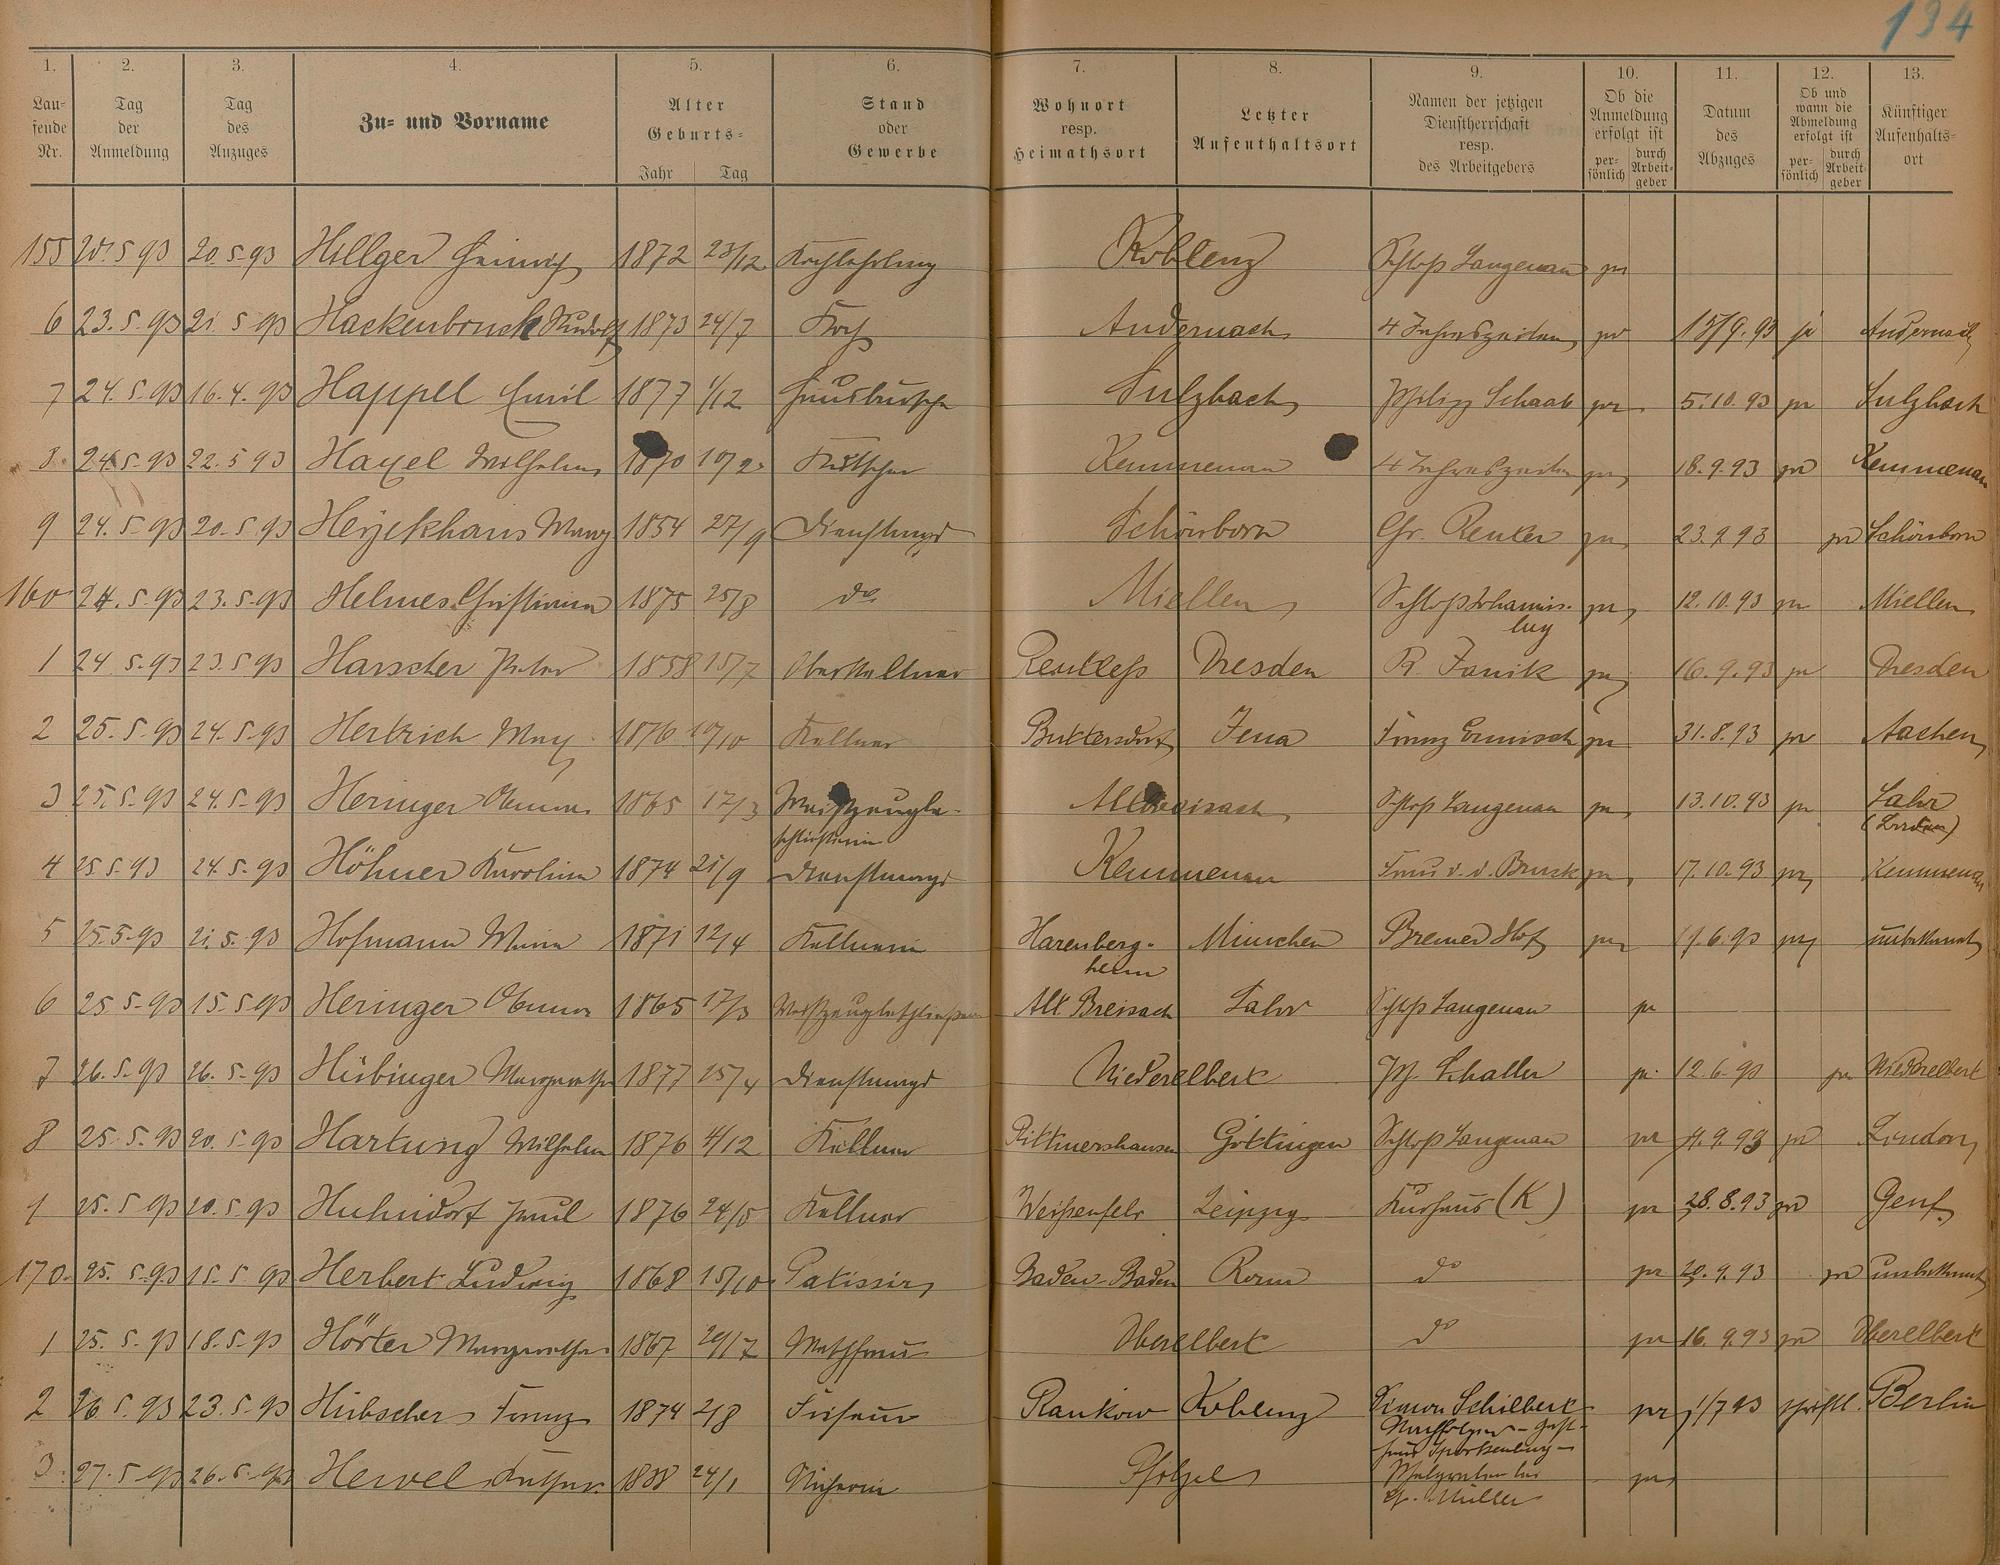 134
1. 2. 3. 4. 5. 6. 7. 8. 9. 10. 11. 12. 13.
Laufende Nr. Tag der Anmeldung Tag des Anzuges Zu- und Vorname Alter Geburts- Jahr Tag Stand oder Gewerbe Wohnort resp. Heimathsort Letzter Aufenthaltsort Namen der jetzigen Dienstherrschaft resp. des Arbeitgebers Ob die Anmeldung erfolgt ist persönlich durch Arbeitgeber Datum des Abzuges Ob und wann die Abmeldung erfolgt ist persönlich durch Arbeitgeber Künftiger Aufenhaltsort
155 20.5 93 20.5.93 Hillger Heinrich 1872 23/12 Kochlehrling Koblenz Schloß Langenau
6 23.5.93 21.5 93 Hackenbruch Rudolf 1873 24/7 Koch Andernach 4 Jahreszeiten 15/9.93 Andernach
7 24.5.93 16.4.93 Happel Emil 1877 1/12 Hausbursche Sulzbach Philipp Schaab 5.10.93 Sulzbach
8 24.5.93 22.5 93 Wilhelm 1870 Kutscher Kemmenau 4 Jahreszeiten 18.9.93 Kemmenau
9 24.5.93 20.5.93 1854 27/9 Dienstmagd Schönborn 23.9.93 Schönborn
160 24.5.93 23.5.93 Helmes Christiana 1875 25/8 do Miellen Schloß Johannisburg 12.10.93 Miellen
1 24 5.93 23.5 93 Harscher Peter 1858 15/7 Oberkellner Dresden R. Janik 16.9.93 Dresden
2 25.5.93 24.5.93 Hertrich Max 1876 10/10 Kellner Buttersdorf Jena Franz Ermisch 31.8.93 Aachen
3 25.5.93 24.5.93 Heringer Emma 1865 17/3 Weißzeugbeschließerin Altbreisach Schloß Langenau 13.10.93 Lahr (Baden)
4 25 5.93 24.5.93 Höhner Karolina 1874 21/9 Dienstmagd Kemmenau Frau v. d. 17.10.93 Kemmenau
5 25.5.93 21.5.93 Hofmann Maria 1871 12/4 Kellnerin Harenbergheim München Bremer Hof 6.93 unbekannt
6 25 5.93 15.5.93 Heringer Emma 1865 17/3 Weißzeugbeschließerin Alt Breisach Lahr Schloß Langenau
7 26.5.93 26.5.93 Hübinger Margaretha 1877 25/4 Dienstmagd Niederelbert Schaller 12.6.93 Niederelbert
8 25.5.93 20.5.93 Hartung Wilhelm 1876 4/12 Kellner Rittmershausen Göttingen Schloß Langenau 4.9.93 London
9 25.5 93 20.5.93 Huhndorf Paul 1876 24/5 Kellner Weißenfels Leipzig Kurhaus (K) 28.8.93 Genf
170 25.5.93 15.5 93 Herbert Ludwig 1868 15/10 Patissier Baden-Baden Rom do 20.9.93 unbekannt
1 25.5.93 18.5.93 Hörter Margaretha 1867 29/7 Waschfrau Oberelbert do 16.9.93 Oberelbert
2 26 5.93 23.5.93 Hübscher Franz 1874 2/8 Friseur Rankow Koblenz Simon Schilbert Nachfolger - Gasthaus Sporkenburg - 1/7 93 schriftl. Berlin
3 27.5.93 26.5.93 Hewel 24/1 Näherin bei Müller